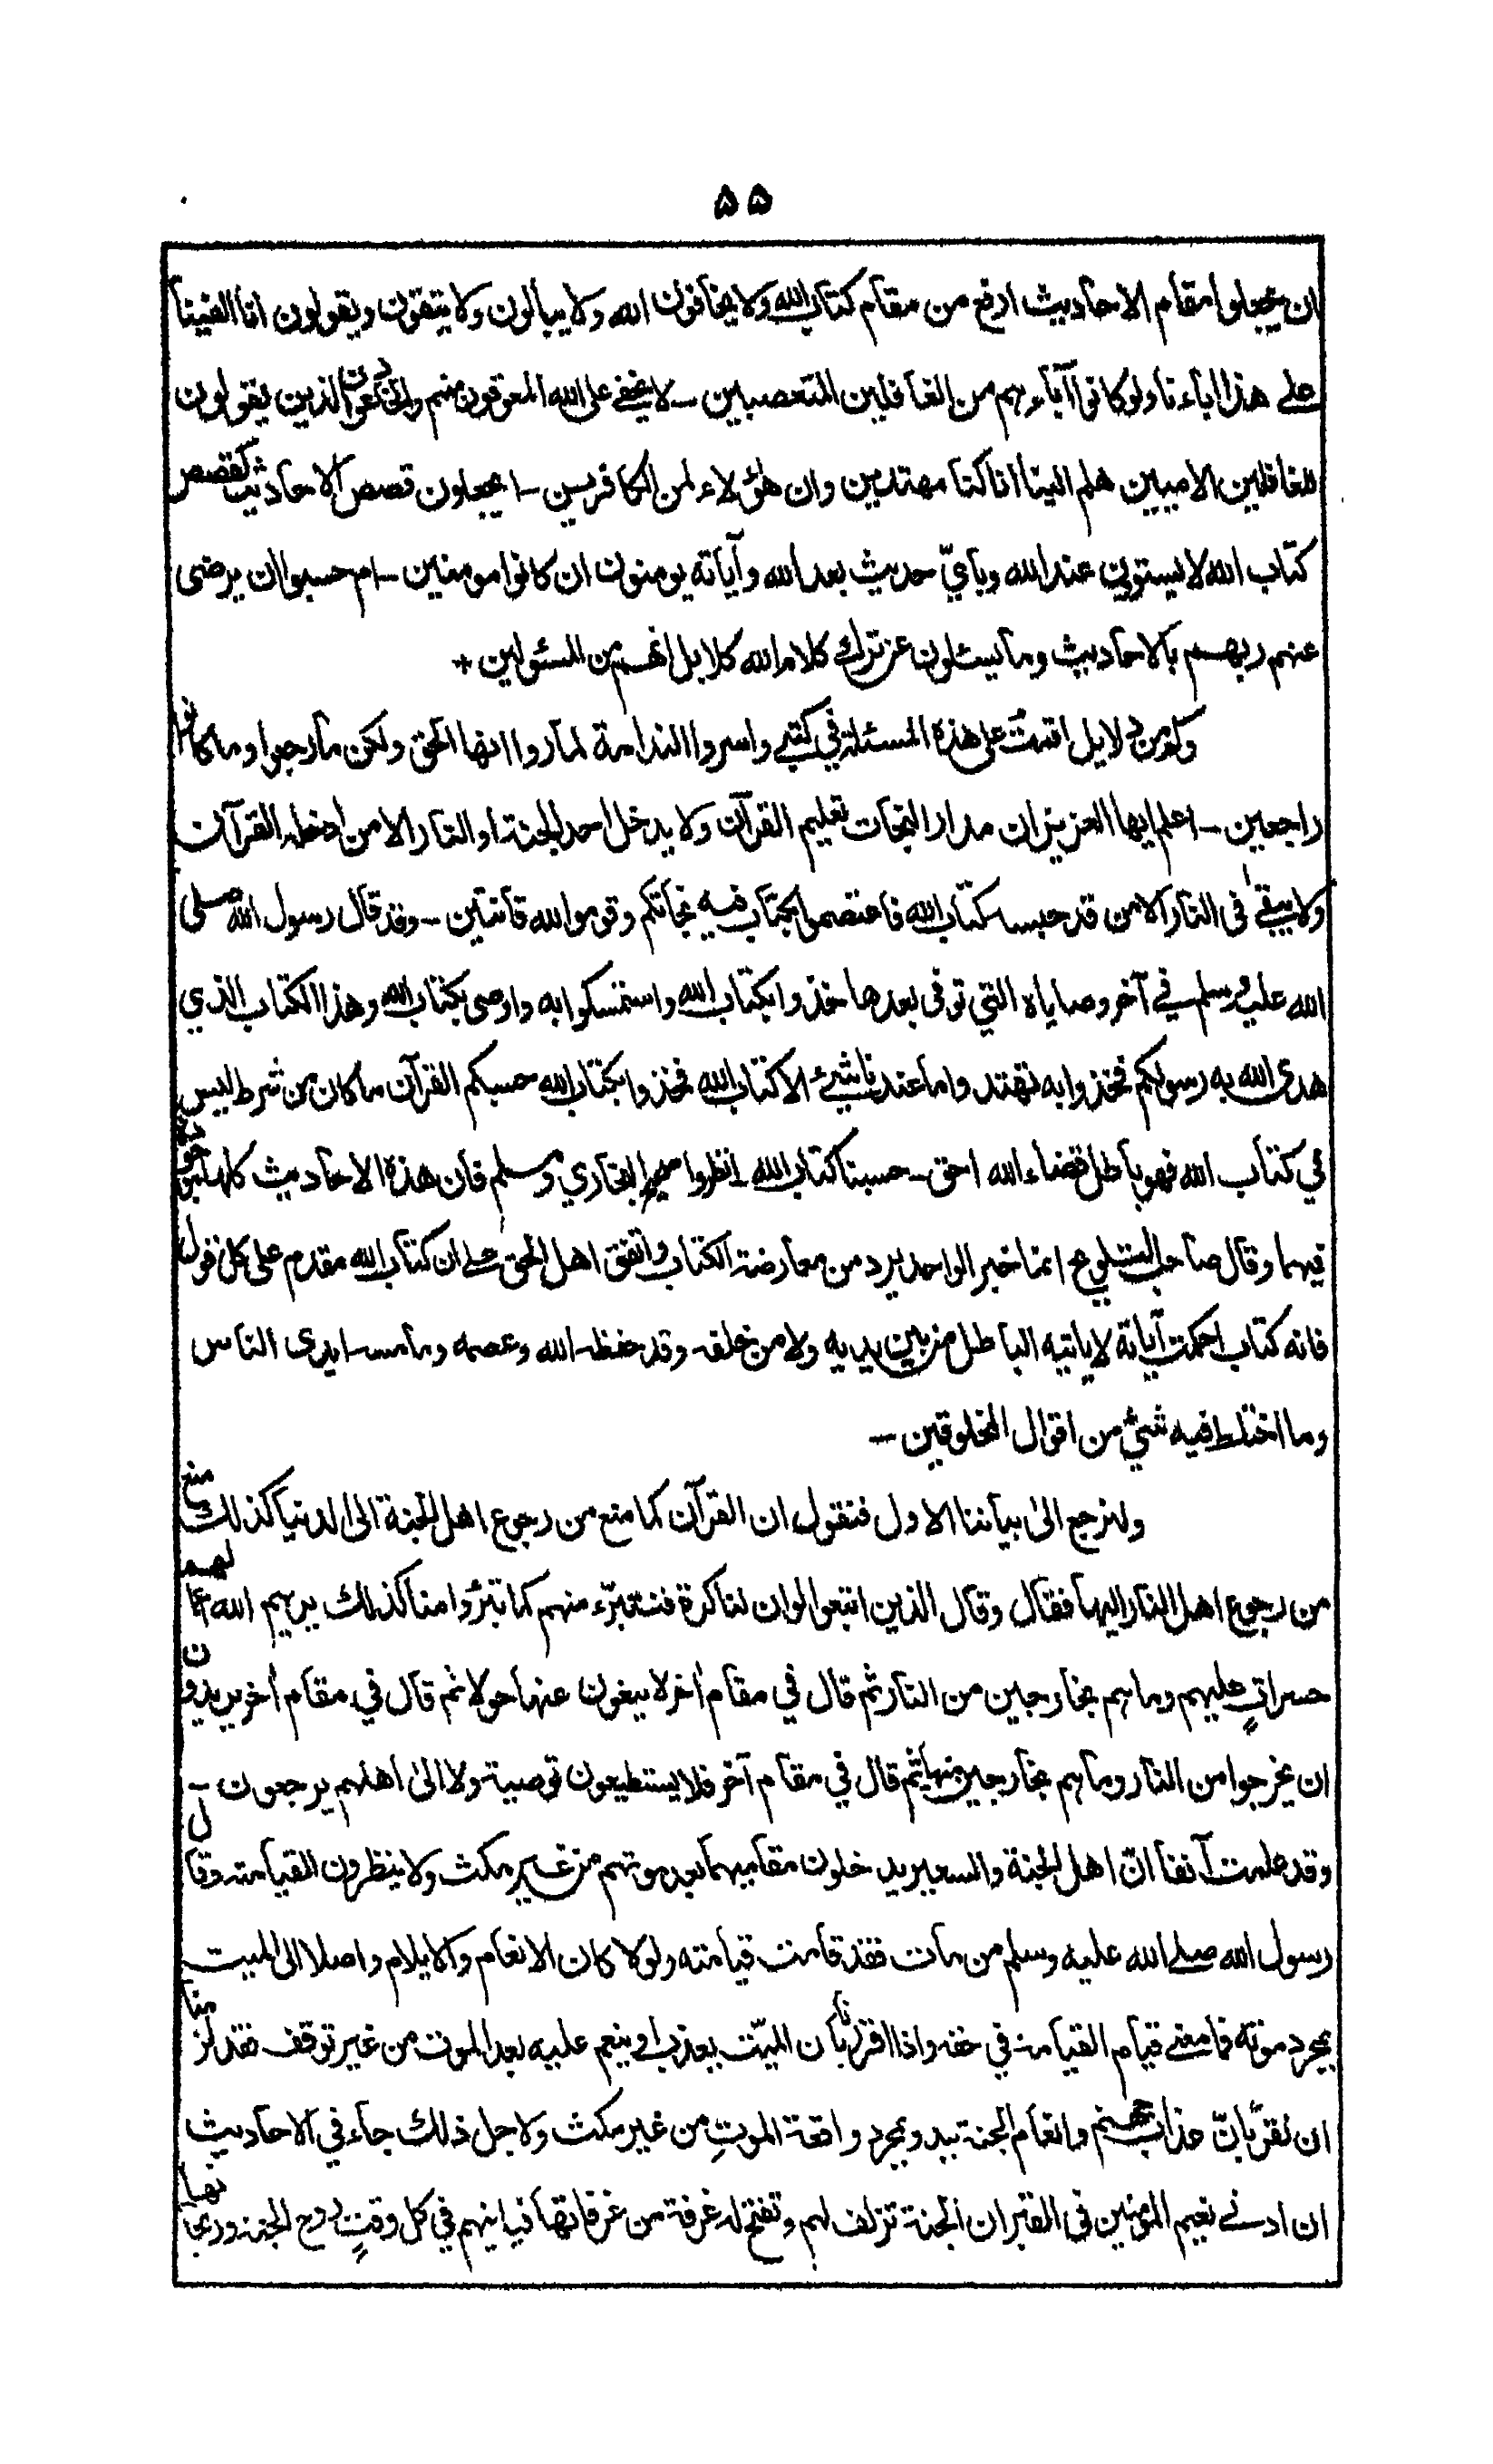 ۵۵
ان يجعلوا مقام الاحاديث ارفع من مقام كتاب الله ولا يخافون الله ولا يبالون ولا يتقون ويقولون انا الفينا
على هذا اباءنا ولو كانوا آباءهم من الغافلين المتعصبين - لا يخفى على الله المعوقون منهم والخادعون الذين يقولون
للغافلين الاميين هلم الينا انا كنا مهتدين وان هؤلاء لمن الكافرين - ايجعلون قصص الاحاديث كقصص
كتاب الله لا يستوين عند الله وبايّ حديث بعد الله وآياته يومنون ان كانوا مومنين - ام حسبوا ان يرضى
عنهم ربهم بالاحاديث وما يسئلون عن ترك كلام الله كلا بل انهم من المسئولين +
وكم من دلايل اقمت على هذه المسئلة في كتبي واسروا الندامة لما راوا انها الحق ولكن ما رجعوا وما كانوا
راجعين - اعلم ايها العزيز ان مدار النجات تعليم القرآن ولا يدخل احد الجنة او النار الا من ادخله القرآن
ولا يبقى في النار الا من قد حبسه كتاب الله فاعتصموا بكتاب فيه نجاتكم وقوموا لله قانتين - وقد قال رسول الله صلى
الله عليه وسلم في آخر وصاياه التي توفى بعدها خذوا بكتاب الله واستمسكوا به واوصى بكتاب الله وهذا الكتاب الذي
هدى الله به رسولكم فخذوا به تهتدوا ما عندنا شيئ الا كتاب الله فخذوا بكتاب الله حسبكم القرآن ما كان من شرط ليس
في كتاب الله فهو باطل قضاء الله احق - حسبنا كتاب الله - انظروا صحيح البخاري ومسلم فان هذه الاحاديث كلها موجودة
فيهما وقال صاحب التلويح انما خبر الواحد يرد من معارضة الكتاب واتفق اهل الحق على ان كتاب الله مقدم على كل قول
فانه كتاب احكمت آياته لا ياتيه الباطل من بين يديه ولا من خلفه وقد حفظه الله وعصمه وما مسه ايدى الناس
وما اختلط فيه شيئ من اقوال المخلوقين -
ولنرجع الى بياننا الاول فنقول ان القرآن كما منع من رجوع اهل الجنة الى الدنيا كذلك منع
من رجوع اهل النار اليها فقال وقال الذين اتبعوا لو ان لنا كرة فنتبرّء منهم كما تبرّؤا منا كذلك يريهم الله اعمالهم
حسراتٍ عليهم وما هم بخارجين من النار ثم قال في مقام أخر لا يبغون عنها حولا ثم قال في مقام أخر يريدون
ان يخرجوا من النار وما هم بخارجين منها ثم قال في مقام آخر فلا يستطيعون توصية ولا الى اهلهم يرجعون -
وقد علمت آنفا انّ اهل الجنة والسعير يدخلون مقاميهما بعد موتهم من غير مكث ولا ينظرون القيامة وقال
رسول الله صلى الله عليه وسلم من مات فقد قامت قيامته ولو لا كان الانعام والايلام واصلا الى الميت
بمجرد موته فما معنى قيام القيامة في حقه واذا اقررنا بان الميّت يعذب او ينعم عليه بعد الموت من غير توقف فقد لزمنا
ان نقرّ بانّ عذاب جهنم وانعام الجنة يبدو بمجرد واقعة الموتِ من غير مكث ولاجل ذلك جاء في الاحاديث
ان ادنى نعيم المؤمنين في القبر ان الجنة تزلف لهم وتفتح له غرفة من غرفاتها فياتيهم في كل وقتٍ روح الجنة وريحانها